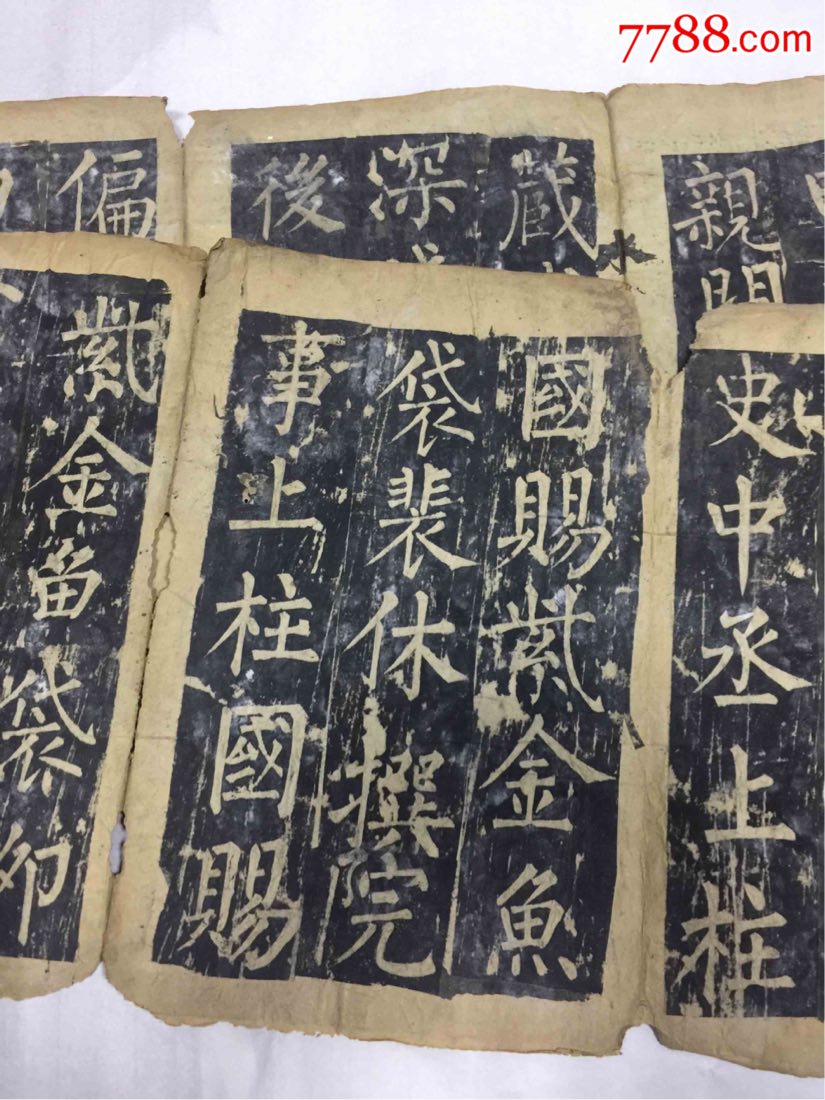 7788.com
親
藏
深
後
偏
史中丞上柱
國賜紫金魚
袋裴休撰院
事上柱國賜
紫金魚袋柳